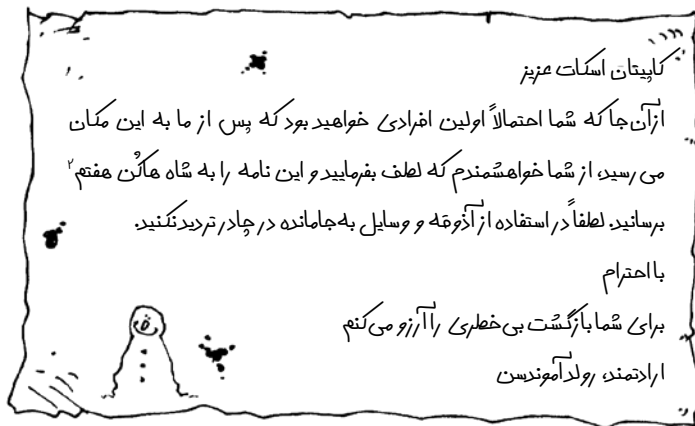 کاپیتان اسکات عزیز
ازآن‌جا که شما احتمالاً اولین افرادی خواهید بود که پس از ما به این مکان
می‌رسید، از شما خواهشمندم که لطف بفرمایید و این نامه را به شاه هاکُن هفتم۲
برسانید. لطفاً در استفاده از آذوقه و وسایل به‌جامانده در چادر تردید نکنید.
با احترام
برای شما بازگشت بی‌خطری را آرزو می‌کنم
ارادتمند، رولد آموندسن